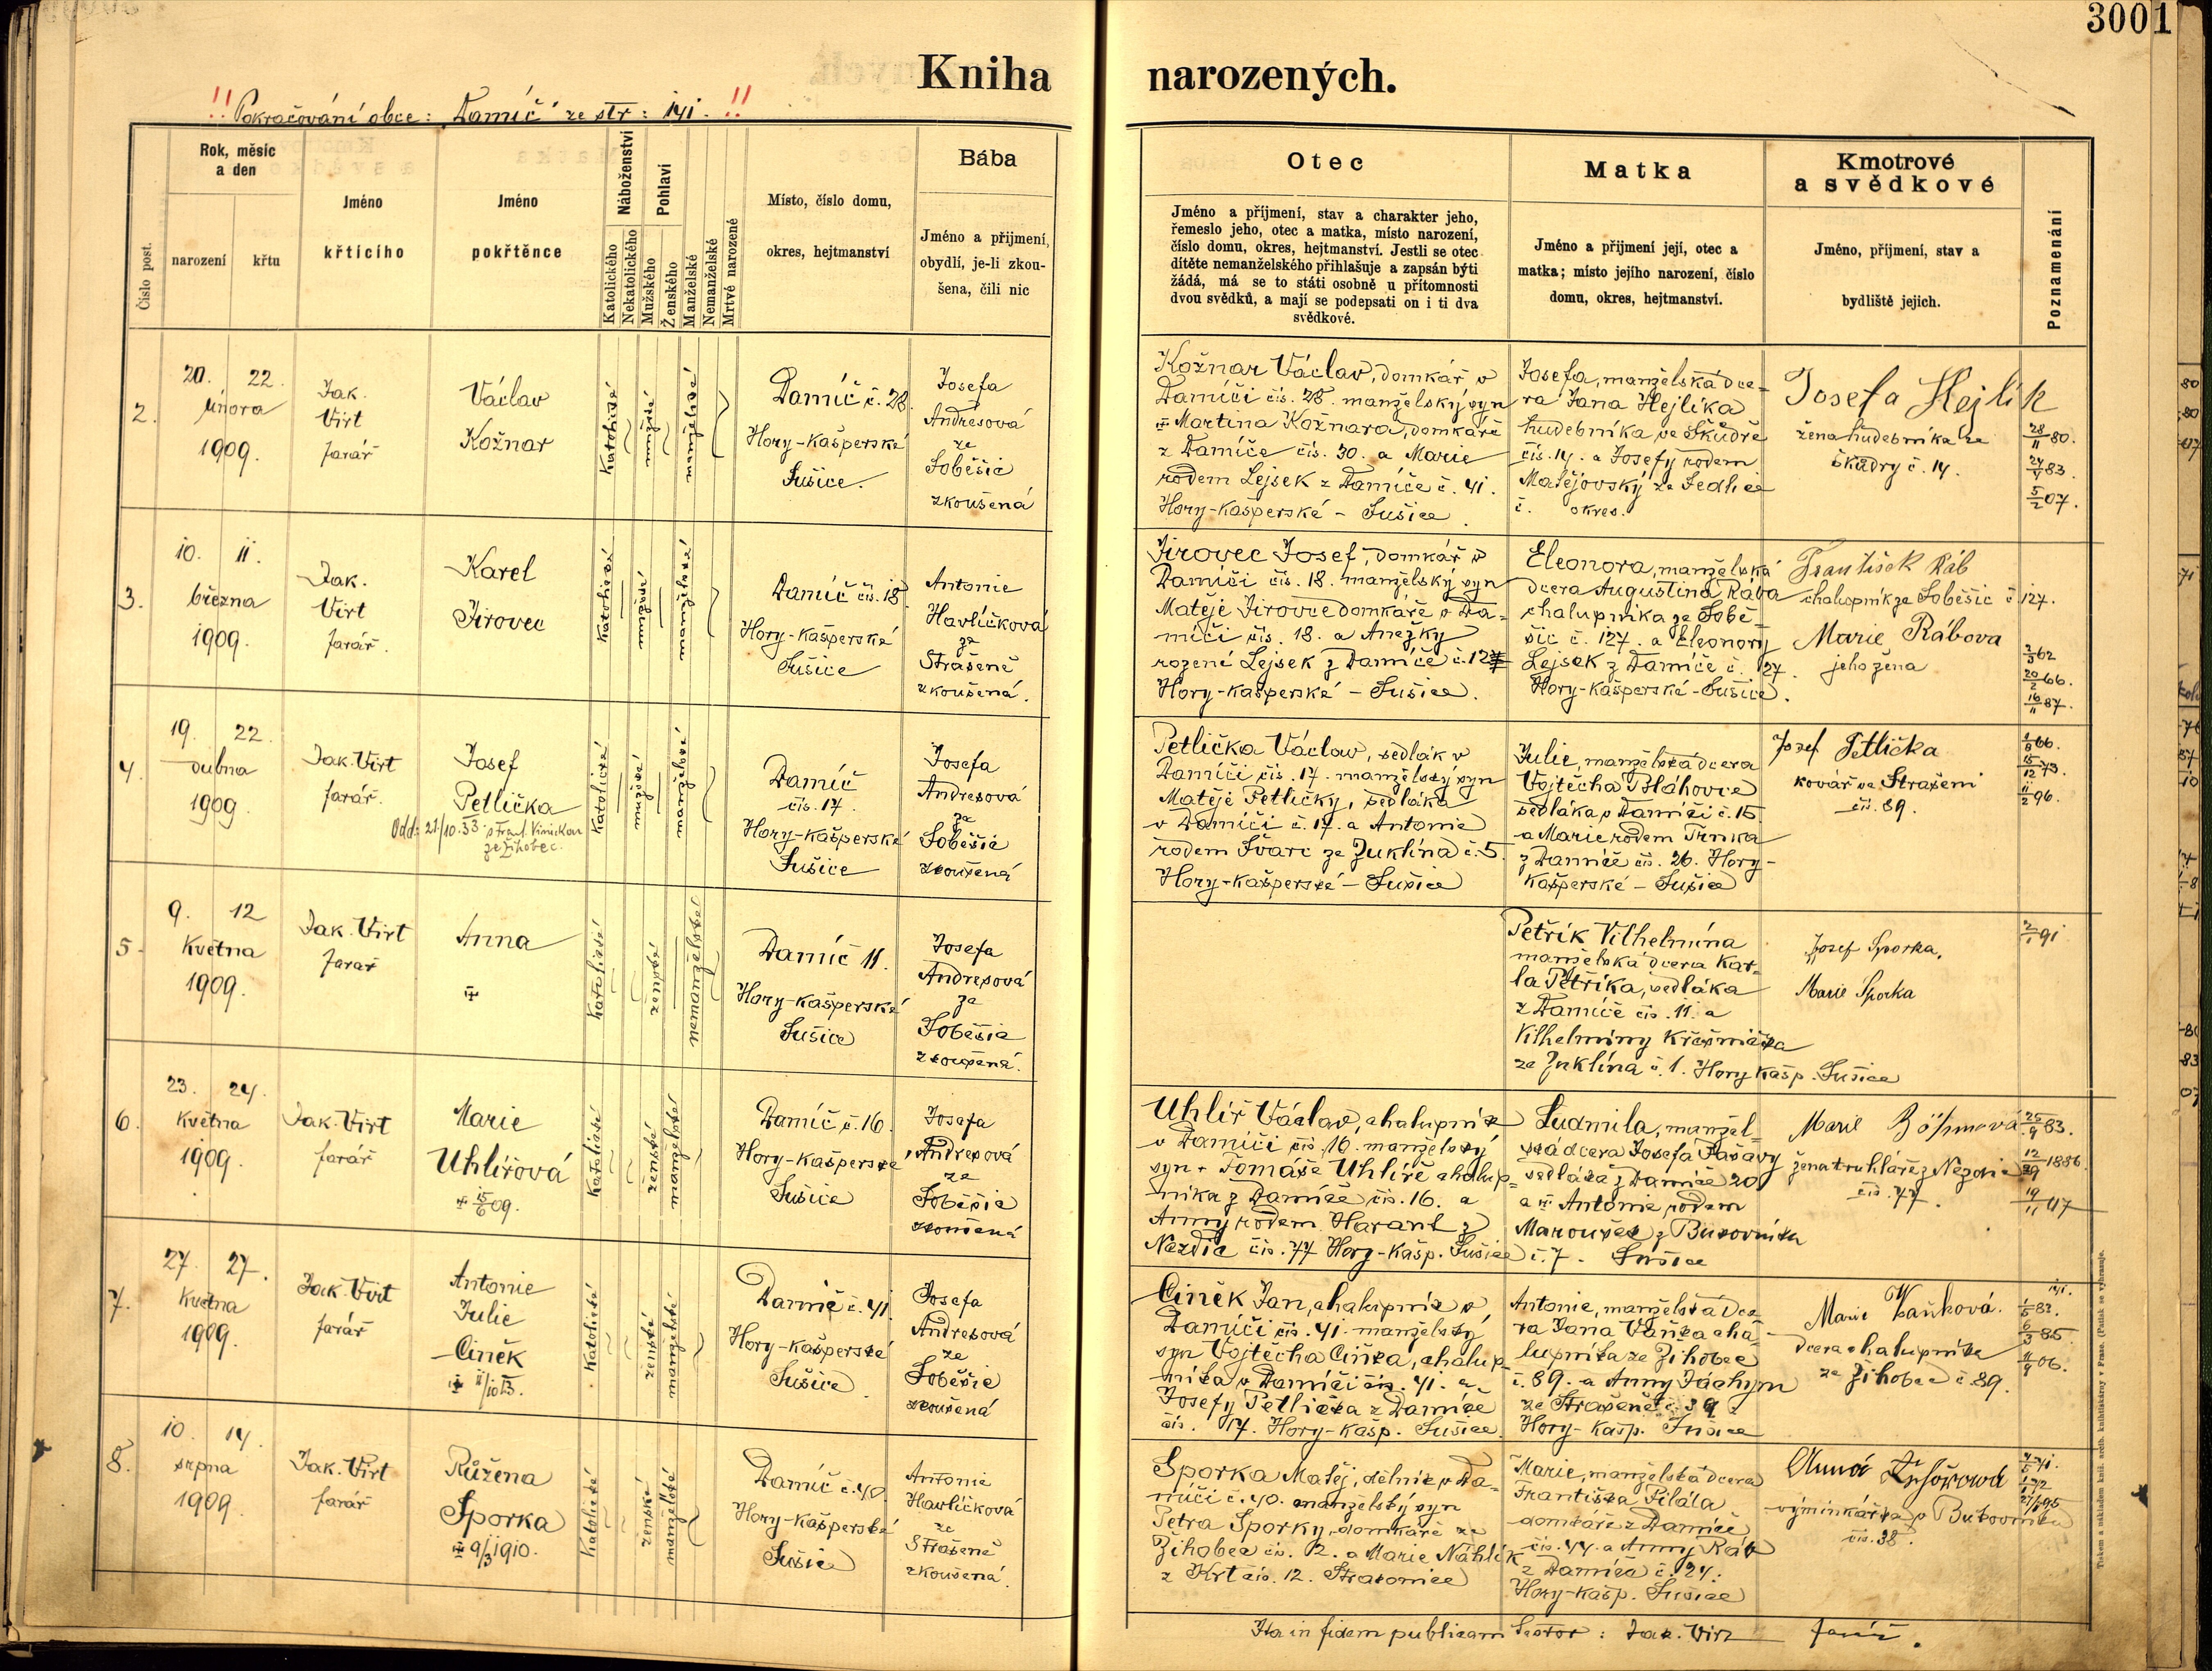 3001
Kniha narozených.
!! Pokračování obce: Damíč ze str: 141. !!
Číslo post.
Rok, měsíc
a den
narození
křtu
Jméno
křtícího
Jméno
pokřtěnce
Náboženství
Katolického
Nekatolického
Pohlaví
Mužského
Ženského
Manželské
Nemanželské
Mrtvě narozené
Místo, číslo domu,
okres, hejtmanství
Bába
Jméno a příjmení,
obydlí, je-li zkou-
šena, čili nic
Otec
Jméno a příjmení, stav a charakter jeho,
řemeslo jeho, otec a matka, místo narození,
číslo domu, okres, hejtmanství. Jestli se otec
dítěte nemanželského přihlašuje a zapsán býti
žádá, má se to státi osobně u přítomnosti
dvou svědků, a mají se podepsati on i ti dva
svědkové.
Matka
Jméno a příjmení její, otec a
matka; místo jejího narození, číslo
domu, okres, hejtmanství.
Kmotrové
a svědkové
Jméno, příjmení, stav a
bydliště jejich.
Poznamenání
2.
20. 22.
února
1909.
Jak.
Virt
farář
Václav
Kožnar
katolické
mužské
manželské
Damíč č. 28.
Hory-Kašperské
Sušice.
Josefa
Andresová
ze
Soběšic
zkoušená
Kožnar Václav, domkář v
Damíči čís. 28. manželský syn
Martina Kožnara, domkáře
z Damíče čís. 30. a Marie
rodem Lejsek z Damíče č. 41.
Hory-Kašperské - Sušice.
Josefa, manželská dce-
ra Jana Hejlíka
hudebníka ve Škudře
čís. 14. a Josefy rodem
Matějovský ze Sedlice
č. okres.
Josefa Hejlík
žena hudebníka ze
Škudry č. 14.
28/11 80.
24/4 83.
5/2 07.
3.
10. 11.
března
1909.
Jak.
Virt
farář.
Karel
Jirovec
katolické
mužské
manželské
Damíč čís. 18.
Hory-Kašperské
Sušice
Antonie
Havlíčková
ze
Strašeně
zkoušená.
Jirovec Josef, domkář v
Damíči čís. 18. manželský syn
Matěje Jirovce domkáře v Da-
míči čís. 18. a Anežky
rozené Lejsek z Damíče č. 127
Hory-Kašperské - Sušice.
Eleonora, manželská
dcera Augustina Rába
chalupníka ze Sobě-
šic č. 127. a Eleonory
Lejsek z Damíče č. 27.
Hory-Kašperské - Sušice.
František Ráb
chalupník ze Soběšic č. 127.
Marie Rábova
jeho žena
2/3 62
20/2 66.
16/11 87.
4.
19. 22.
dubna
1909
Jak. Virt
farář.
Josef
Petlička
Odd: 21/10.33 s Frant. Vinickou
ze Žihobec.
katolické
mužské
manželské
Damíč
čís. 17.
Hory-Kašperské
Sušice
Josefa
Andresová
ze
Soběšic
zkoušená
Petlička Václav, sedlák v
Damíči čís. 17. manželský syn
Matěje Petličky, sedláka
v Damíči č. 17. a Antonie
rodem Švarc ze Zuklína č. 5.
Hory-Kašperské - Sušice
Julie, manželská dcera
Vojtěcha Bláhovce
sedláka v Damíči č. 15
a Marie rodem Trnka
z Damíče čís. 26. Hory-
Kašperské - Sušice
Josef Petlička
kovář ve Strašeni
čís. 89.
66.
15/12 73.
11/2 96.
5.
9. 12
Května
1909.
Jak. Virt
farář
Anna
katolické
ženské
nemanželské
Damíč 11.
Hory-Kašperské
Sušice
Josefa
Andresová
ze
Soběšic
zkoušená.
Petřík Vilhelmína
manželská dcera Kar-
la Petříka, sedláka
z Damíče čís. 11. a
Vilhelminy Křešnička
ze Zuklína č. 1. Hory Kašp. Sušice
Josef Sporka,
Marie Sporka
2/1 91
6.
23. 24.
Května
1909.
Jak. Virt
farář
Marie
Uhlířová
15/6 09.
Katolické
ženské
manželské
Damíč č. 16.
Hory-Kašperské
Sušice
Josefa
Andresová
ze
Soběšic
zkoušená
Uhlíř Václav, chalupník
v Damíči čís. 16. manželský
syn Tomáše Uhlíře chalup-
níka z Damíče čís. 16. a
Anny rodem Harant z
Nezdic čís. 77 Hory-Kašp. Sušice
Ludmila, manžel-
ská dcera Josefa Pašavy
sedláka z Damíče 20
a Antonie rodem
Maroušek z Bukovníka
č. 7. Sušice
Marie Böhmová
žena truhláře z Nezdic
čís. 77.
25/9 83.
12/29 1886.
19/11 07
7.
27. 27.
Května
1909.
Jak. Virt
farář
Antonie
Julie
Ciněk
11/10 13.
Katolické
ženské
manželské
Damíč č. 41.
Hory-Kašperské
Sušice.
Josefa
Andresová
ze
Soběšic
zkoušená
Ciněk Jan, chalupník v
Damíči čís. 41. manželský
syn Vojtěcha Ciňka, chalup-
níka v Damíči čís. 41. a
Josefy Petlička z Damíče
čís. 17. Hory-Kašp. Sušice.
Antonie, manželská dce-
ra Jana Vaňka cha-
lupníka ze Žihobec
č. 89. a Anny Jáchym
ze Strašeně č. 39
Hory-Kašp. Sušice
Marie Vaňková.
dcera chalupníka
ze Žihobec č. 89.
1/5 82.
6/3 85.
11/9 06.
8.
10. 14.
srpna
1909.
Jak. Virt
farář
Růžena
Sporka
9/3 1910.
Katolické
ženské
manželské
Damíč č. 40.
Hory-Kašperské
Sušice
Antonie
Havlíčková
ze
Strašeně
zkoušená.
Sporka Matěj, dělník v Da-
míči č. 40. manželský syn
Petra Sporky, domkáře ze
Žihobec čís. 2. a Marie Náhlík
z Krt čís. 12. Strakonice
Marie, manželská dcera
Františka Filála
domkáře z Damíče
čís. 44. a Anny Ráb
z Damíče č. 24.
Hory-Kašp. Sušice
Anna
výminkářka v Bukovníku
čís. 38.
Ita in fidem publicam testor: Jak. Virt farář.
Tiskem a nákladem kníž. arcib. knihtiskárny v Praze. (Patisk se vyhrazuje.